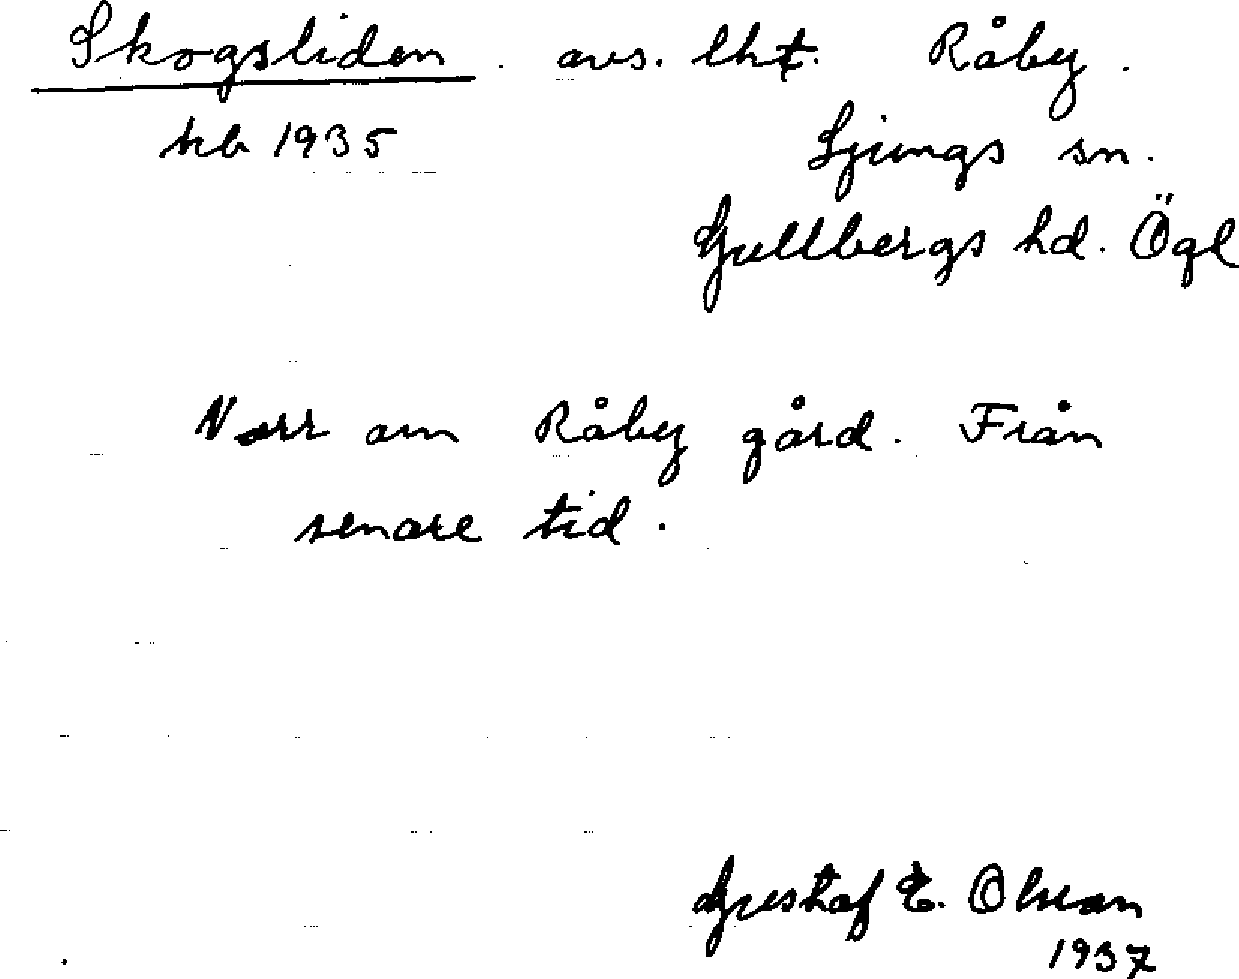 Skogsliden. avs. lht. Råby.
kb 1935
Ljungs sn.
Gullbergs hd. Ögl
Norr om Råby gård. Från
senare tid.
Gustaf E. Olsson
1937